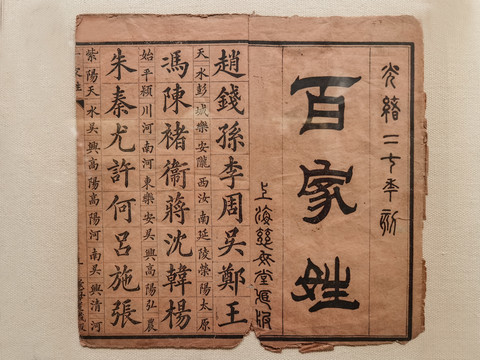 光緒二七年
百家姓
上海慈母堂
趙錢孫李周吳鄭王
天水彭城樂安隴西汝南延陵滎陽太原
馮陳褚衞蔣沈韓楊
始平潁川河南河東樂安吳興高陽弘農
朱秦尤許何呂施張
紫陽天水吳興高陽高陽河南吳興清河